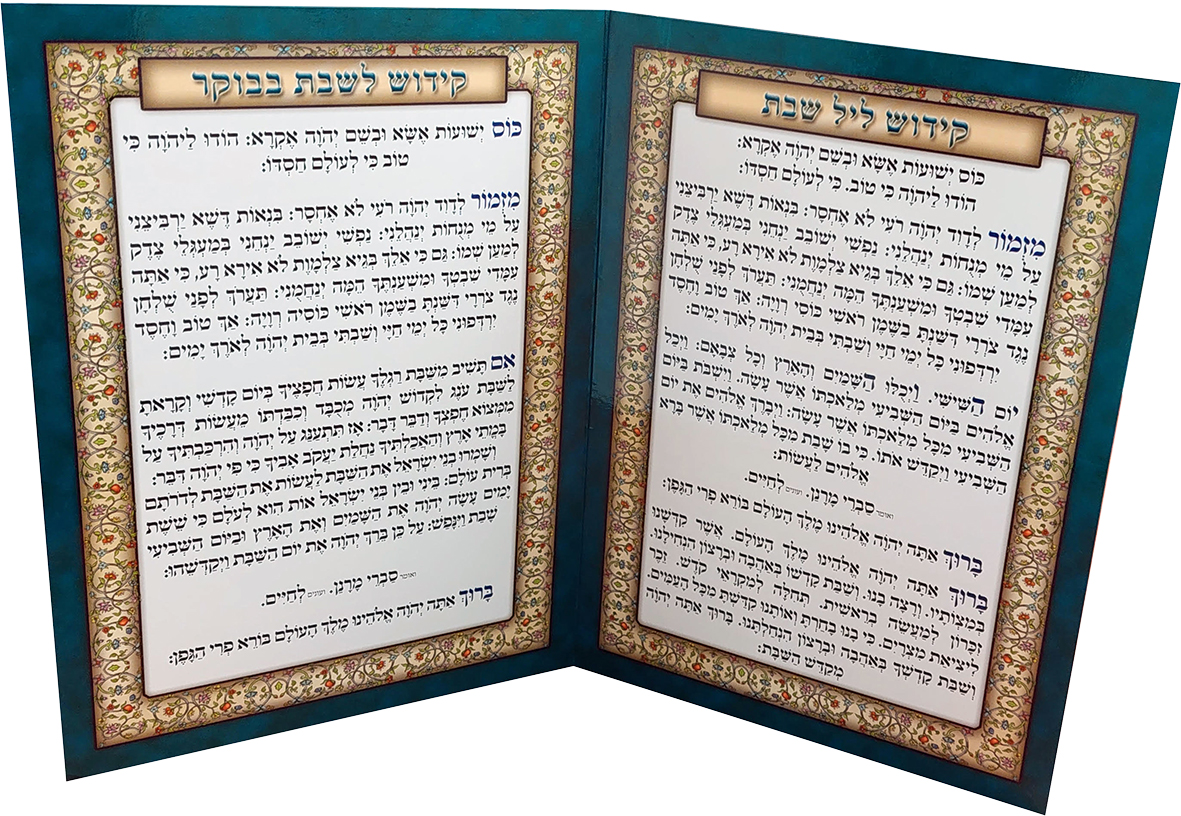 קידוש ליל שבת
כּוֹס יְשׁוּעוֹת אֶשָּׂא וּבְשֵׁם יְהֹוָה אֶקְרָא:
הוֹדוּ לַיהֹוָה כִּי טוֹב. כִּי לְעוֹלָם חַסְדּוֹ:
מִזְמוֹר לְדָוִד יְהֹוָה רֹעִי לֹא אֶחְסָר: בִּנְאוֹת דֶּשֶׁא יַרְבִּיצֵנִי
עַל מֵי מְנֻחוֹת יְנַהֲלֵנִי: נַפְשִׁי יְשׁוֹבֵב יַנְחֵנִי בְמַעְגְּלֵי צֶדֶק
לְמַעַן שְׁמוֹ: גַּם כִּי אֵלֵךְ בְּגֵיא צַלְמָוֶת לֹא אִירָא רָע, כִּי אַתָּה
עִמָּדִי שִׁבְטְךָ וּמִשְׁעַנְתֶּךָ הֵמָּה יְנַחֲמֻנִי: תַּעֲרֹךְ לְפָנַי שֻׁלְחָן
נֶגֶד צֹרְרָי דִּשַּׁנְתָּ בַשֶּׁמֶן רֹאשִׁי כּוֹסִי רְוָיָה: אַךְ טוֹב וָחֶסֶד
יִרְדְּפוּנִי כָּל יְמֵי חַיָּי וְשַׁבְתִּי בְּבֵית יְהֹוָה לְאֹרֶךְ יָמִים:
יוֹם הַשִּׁישִּׁי. וַיְכֻלּוּ הַשָּׁמַיִם וְהָאָרֶץ וְכָל צְבָאָם: וַיְכַל
אֱלֹהִים בַּיּוֹם הַשְּׁבִיעִי מְלַאכְתּוֹ אֲשֶׁר עָשָׂה. וַיִּשְׁבֹּת בַּיּוֹם
הַשְּׁבִיעִי מִכָּל מְלַאכְתּוֹ אֲשֶׁר עָשָׂה: וַיְבָרֶךְ אֱלֹהִים אֶת יוֹם
הַשְּׁבִיעִי וַיְקַדֵּשׁ אֹתוֹ. כִּי בוֹ שָׁבַת מִכָּל מְלַאכְתּוֹ אֲשֶׁר בָּרָא
אֱלֹהִים לַעֲשׂוֹת:
ואומר סַבְרִי מָרָנָן. ועונים לְחַיִּים.
בָּרוּךְ אַתָּה יְהֹוָה אֱלֹהֵינוּ מֶלֶךְ הָעוֹלָם בּוֹרֵא פְּרִי הַגֶּפֶן:
בָּרוּךְ אַתָּה יְהֹוָה אֱלֹהֵינוּ מֶלֶךְ הָעוֹלָם. אֲשֶׁר קִדְּשָׁנוּ
בְּמִצְוֹתָיו. וְרָצָה בָנוּ. וְשַׁבַּת קָדְשׁוֹ בְּאַהֲבָה וּבְרָצוֹן הִנְחִילָנוּ.
זִכָּרוֹן לְמַעֲשֵׂה בְרֵאשִׁית. תְּחִלָּה לְמִקְרָאֵי קֹדֶשׁ. זֵכֶר
לִיצִיאַת מִצְרָיִם. כִּי בָנוּ בָחַרְתָּ וְאוֹתָנוּ קִדַּשְׁתָּ מִכָּל הָעַמִּים.
וְשַׁבַּת קָדְשְׁךָ בְּאַהֲבָה וּבְרָצוֹן הִנְחַלְתָּנוּ. בָּרוּךְ אַתָּה יְהֹוָה
מְקַדֵּשׁ הַשַּׁבָּת:
קידוש לשבת בבוקר
כּוֹס יְשׁוּעוֹת אֶשָּׂא וּבְשֵׁם יְהֹוָה אֶקְרָא: הוֹדוּ לַיהֹוָה כִּי
טוֹב כִּי לְעוֹלָם חַסְדּוֹ:
מִזְמוֹר לְדָוִד יְהֹוָה רֹעִי לֹא אֶחְסָר: בִּנְאוֹת דֶּשֶׁא יַרְבִּיצֵנִי
עַל מֵי מְנֻחוֹת יְנַהֲלֵנִי: נַפְשִׁי יְשׁוֹבֵב יַנְחֵנִי בְמַעְגְּלֵי צֶדֶק
לְמַעַן שְׁמוֹ: גַּם כִּי אֵלֵךְ בְּגֵיא צַלְמָוֶת לֹא אִירָא רָע, כִּי אַתָּה
עִמָּדִי שִׁבְטְךָ וּמִשְׁעַנְתֶּךָ הֵמָּה יְנַחֲמֻנִי: תַּעֲרֹךְ לְפָנַי שֻׁלְחָן
נֶגֶד צֹרְרָי דִּשַּׁנְתָּ בַשֶּׁמֶן רֹאשִׁי כּוֹסִי רְוָיָה: אַךְ טוֹב וָחֶסֶד
יִרְדְּפוּנִי כָּל יְמֵי חַיָּי וְשַׁבְתִּי בְּבֵית יְהֹוָה לְאֹרֶךְ יָמִים:
אִם תָּשִׁיב מִשַּׁבָּת רַגְלֶךָ עֲשׂוֹת חֲפָצֶיךָ בְּיוֹם קָדְשִׁי וְקָרָאתָ
לַשַּׁבָּת עֹנֶג לִקְדוֹשׁ יְהֹוָה מְכֻבָּד וְכִבַּדְתּוֹ מֵעֲשׂוֹת דְּרָכֶיךָ
מִמְּצוֹא חֶפְצְךָ וְדַבֵּר דָּבָר: אָז תִּתְעַנַּג עַל יְהֹוָה וְהִרְכַּבְתִּיךָ עַל
בָּמֳתֵי אָרֶץ וְהַאֲכַלְתִּיךָ נַחֲלַת יַעֲקֹב אָבִיךָ כִּי פִּי יְהֹוָה דִּבֵּר:
וְשָׁמְרוּ בְנֵי יִשְׂרָאֵל אֶת הַשַּׁבָּת לַעֲשׂוֹת אֶת הַשַּׁבָּת לְדֹרֹתָם
בְּרִית עוֹלָם: בֵּינִי וּבֵין בְּנֵי יִשְׂרָאֵל אוֹת הִוא לְעֹלָם כִּי שֵׁשֶׁת
יָמִים עָשָׂה יְהֹוָה אֶת הַשָּׁמַיִם וְאֶת הָאָרֶץ וּבַיּוֹם הַשְּׁבִיעִי
שָׁבַת וַיִּנָּפַשׁ: עַל כֵּן בֵּרַךְ יְהֹוָה אֶת יוֹם הַשַּׁבָּת וַיְקַדְּשֵׁהוּ:
ואומר סַבְרִי מָרָנָן. ועונים לְחַיִּים.
בָּרוּךְ אַתָּה יְהֹוָה אֱלֹהֵינוּ מֶלֶךְ הָעוֹלָם בּוֹרֵא פְּרִי הַגֶּפֶן: